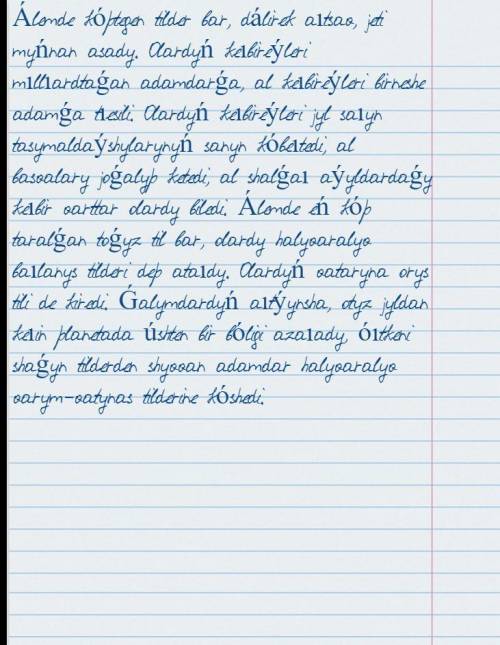 Álemde kóptegen tilder bar, dálirek aıtsaq, jeti
myńnan asady. Olardyń keıbireýleri
mıllıardtaǵan adamdarǵa, al keıbireýleri birneshe
adamǵa tıesili. Olardyń keıbireýleri jyl saıyn
tasymaldaýshylarynyń sanyn kóbeıtedi, al
basqalary joǵalyp ketedi, al shalǵaı aýyldardaǵy
keıbir qarttar olardy biledi. Álemde eń kóp
taralǵan toǵyz til bar, olardy halyqaralyq
baılanys tilderi dep ataıdy. Olardyń qataryna orys
tili de kiredi. Ǵalymdardyń aıtýynsha, otyz jyldan
keıin planetada úshten bir bóligi azaıady, óıtkeni
shaǵyn tilderden shyqqan adamdar halyqaralyq
qarym-qatynas tilderine kóshedi.